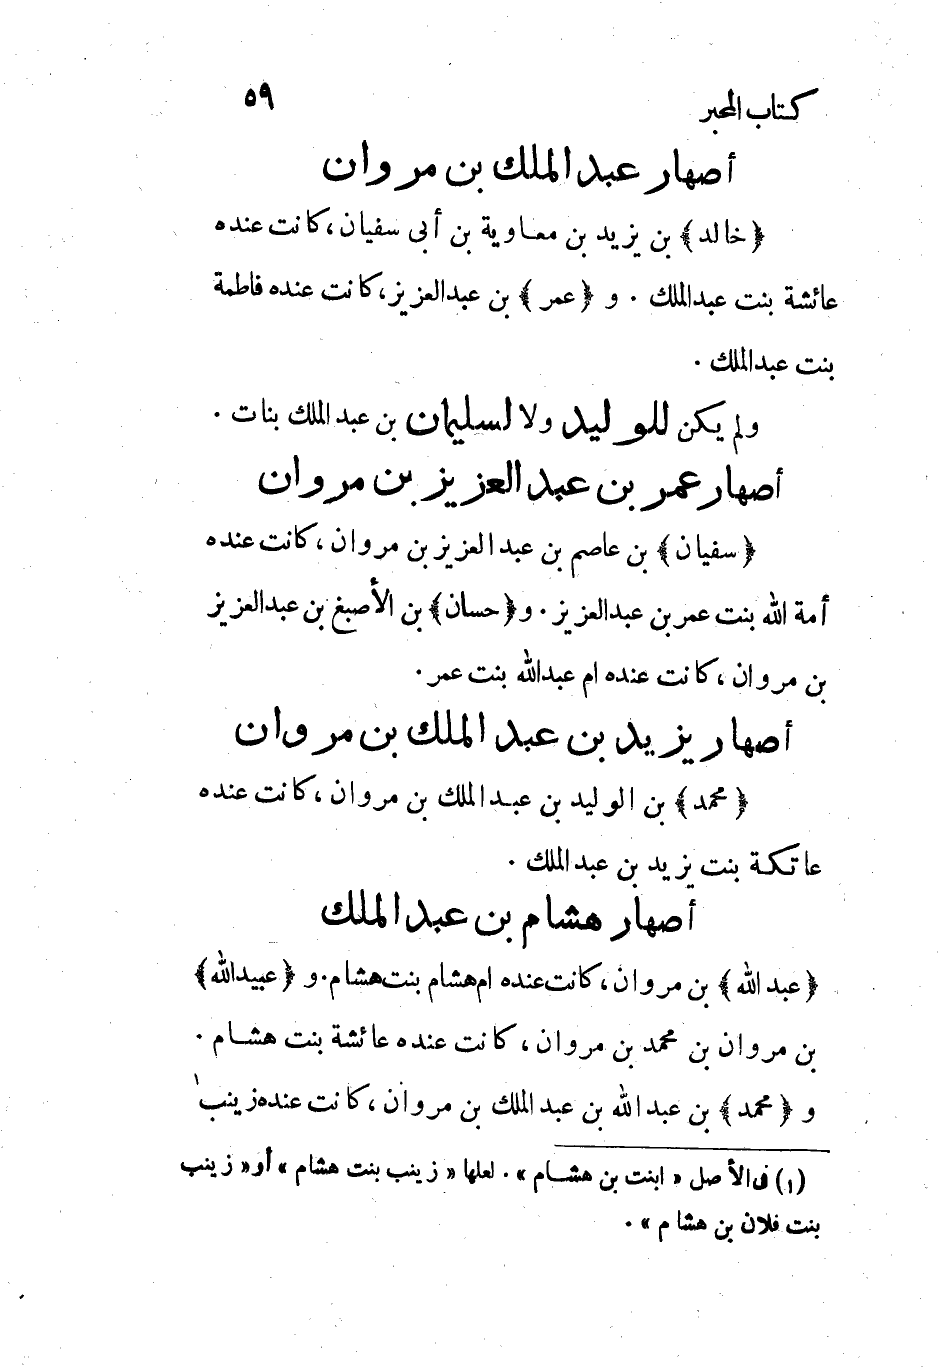 كتاب المحبر ٥٩
أصهار عبد الملك بن مروان
﴿خالد﴾ بن يزيد بن معاوية بن أبى سفيان ، كانت عنده
عائشة بنت عبدالملك . و ﴿عمر﴾ بن عبدالعزيز ، كانت عنده فاطمة
بنت عبدالملك .
ولم يكن للوليد ولا لسليمان بن عبد الملك بنات .
أصهار عمر بن عبد العزيز بن مروان
﴿سفيان﴾ بن عاصم بن عبد العزيز بن مروان ، كانت عنده
أمة الله بنت عمر بن عبدالعزيز . و ﴿حسان﴾ بن الأصبغ بن عبدالعزيز
بن مروان ، كانت عنده ام عبدالله بنت عمر .
أصهار يزيد بن عبد الملك بن مروان
﴿محمد﴾ بن الوليد بن عبد الملك بن مروان ، كانت عنده
عاتكة بنت يزيد بن عبد الملك .
أصهار هشام بن عبد الملك
﴿عبد الله﴾ بن مروان ، كانت عنده ام هشام بنت هشام . و ﴿عبيدالله﴾
بن مروان بن محمد بن مروان ، كانت عنده عائشة بنت هشام .
و ﴿محمد﴾ بن عبد الله بن عبد الملك بن مروان ، كانت عنده زينب١
(١) فى الأصل « ابنت بن هشام » . لعلها « زينب بنت هشام » أو « زينب
بنت فلان بن هشام » .